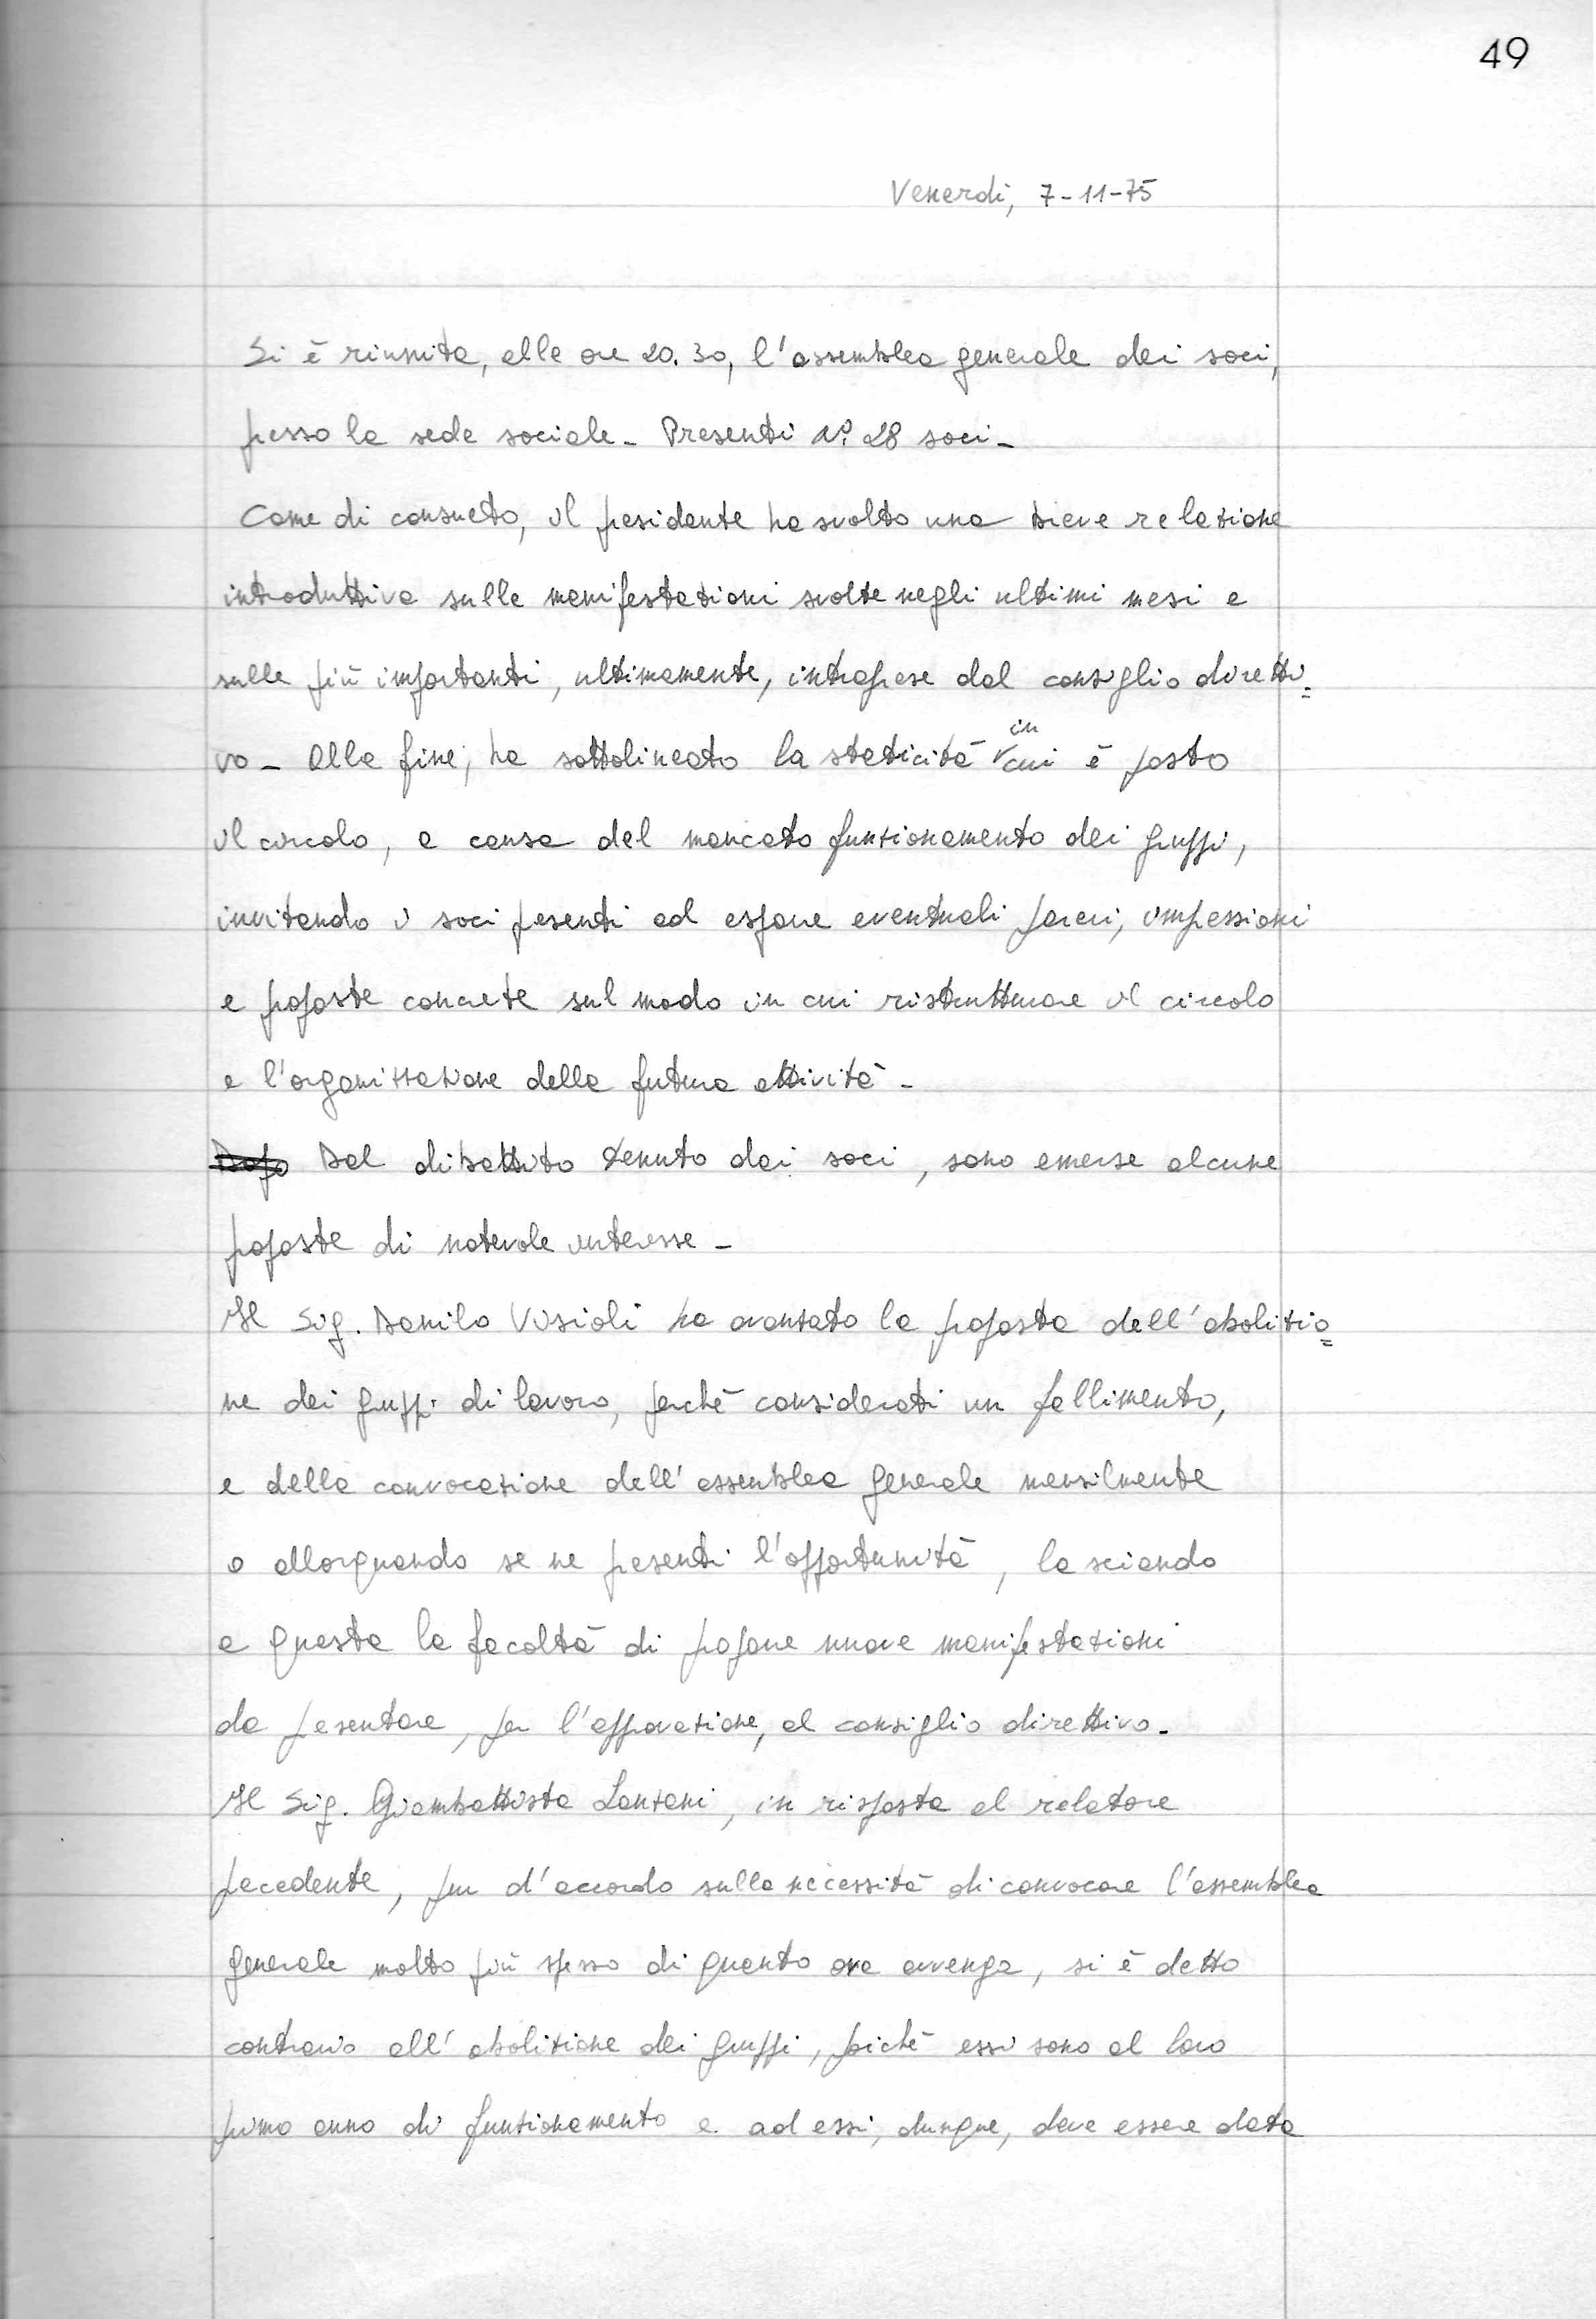 49
Venerdì, 7-11-75
Si è riunita, alle ore 20.30, l'assemblea generale dei soci,
presso la sede sociale - Presenti n.° 28 soci -
Come di consueto, il presidente ha svolto una breve relazione
introduttiva sulle manifestazioni svolte negli ultimi mesi e
sulle più importanti, ultimamente, intraprese dal consiglio diretti=
vo - Alla fine, ha sottolineato la staticità in cui è posto
il circolo, a causa del mancato funzionamento dei gruppi,
invitando i soci presenti ad esporre eventuali pareri, impressioni
e proposte concrete sul modo in cui ristrutturare il circolo
e l'organizzazione della futura attività -
Dopo Dal dibattito tenuto dai soci, sono emerse alcune
proposte di notevole interesse -
Il Sig. Danilo Visioli ha avanzato la proposta dell'abolizio=
ne dei gruppi di lavoro, perché considerati un fallimento,
e della convocazione dell'assemblea generale mensilmente
o allorquando se ne presenti l'opportunità, lasciando
a questa la facoltà di proporre nuove manifestazioni
da presentare, per l'approvazione, al consiglio direttivo -
Il Sig. Giambattista Lanzani, in risposta al relatore
precedente, pur d'accordo sulla necessità di convocare l'assemblea
generale molto più spesso di quanto ora avvenga, si è detto
contrario all'abolizione dei gruppi, poiché essi sono al loro
primo anno di funzionamento e ad essi, dunque, deve essere data